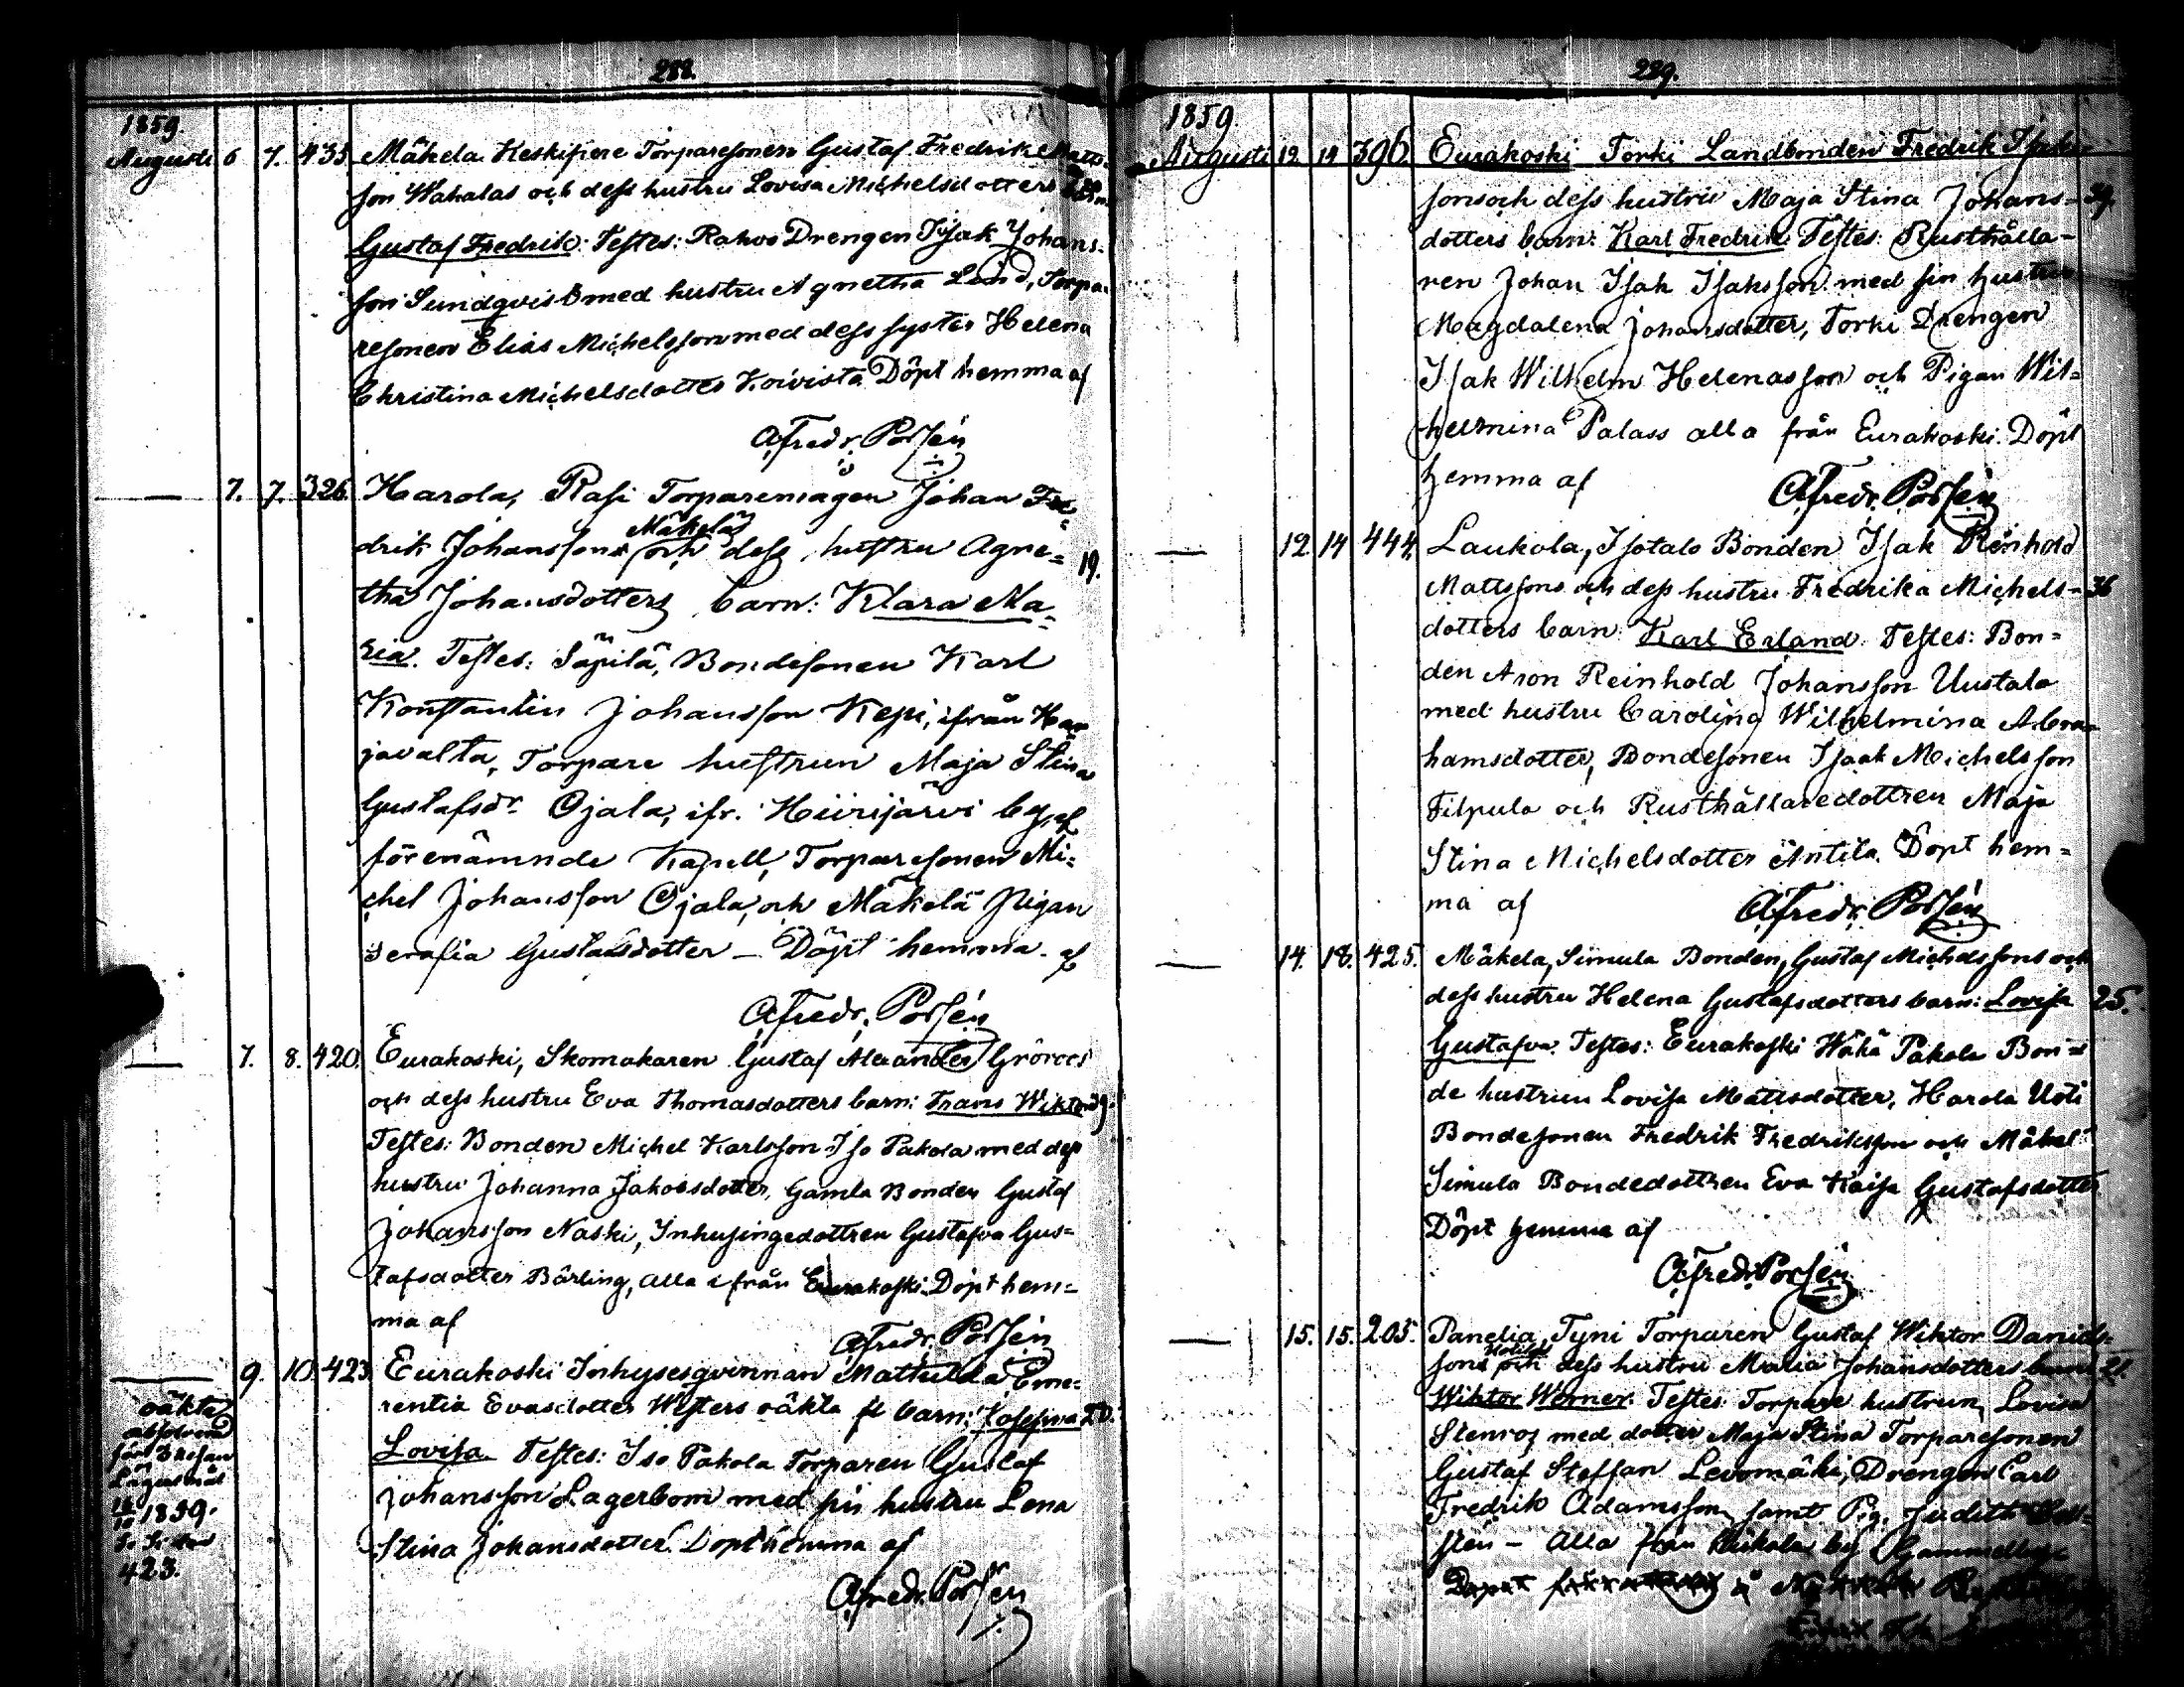 288.
1859.
Augusti 6 7. 435 Mäkelä Keskipere Torparesonen Gustaf Fredrik Matts-
son Wahalas och dess hustru Lovisa Michelsdotters
Gustaf Fredrik. Testes: Rahvo Drengen Isak Johans-
son Sundqvist med hustru Agnetha Lind, Torpa-
resonen Elias Michelsson med dess syster Helena
Christina Michelsdotter Koivista Döpt hemma af
A. Fredr. Porsén
7. 7. 326 Harola, Rasi Torparemågen Johan Fre-
Mäkelä
drik Johanssons och dess hustru Agne- 19.
tha Johansdotters barn: Klara Ma-
ria. Testes: Säpilä, Bondesonen Karl
Konstantin Johansson Kepi, ifrån Har-
javalta, Torpare hustrun Maja Stina
Gustafsdr Ojala, ifr. Hiirijärvi by, af
förenämnde Kapell, Torparesonen Mi-
chel Johansson Ojala, och Mäkelä Pigan
Serafia Gustafsdotter – Döpt hemma af
A. Fredr. Porsén
7. 8. 420. Eurakoski, Skomakaren Gustaf Alexander Grönroos
och dess hustru Eva Thomasdotters barn: Frans Wiktor
Testes: Bonden Michel Karlsson Iso Pakola med dess
hustru Johanna Jakobsdotter, Gamla Bonden Gustaf
Johansson Naski, Inhysingedottren Gustafva Gus-
tafsdotter Bärling, alla ifrån Eurakoski. Döpt hem-
ma af
A. Fredr. Porsén
9. 10. 423 Eurakoski Inhysesqvinnan Mathilda Eme-
rentia Evasdotter Westers oäkta fl barn: Josefina
Lovisa Testes: Iso Pakola Torparen Gustaf
Johansson Lagerbom med sin hustru Lena
Stina Johansdotter. Döpt hemma af
A. Fredr. Porsén
oäkta
absolverad
för
Lägersmål
1859.
423.
289.
1859.
Augusti 12 14 396 Eurakoski Torki Landbonden Fredrik Isaks-
sons och dess hustru Maja Stina Johans- 39.
dotters barn: Karl Fredrik. Testes: Rusthålla-
ren Johan Isak Isaksson med sin hustru
Magdalena Johansdotter, Torki Drengen
Isak Wilhelm Helenasson och Pigan Wil-
helmina Palass alla från Eurakoski. Döpt
hemma af
A. Fredr. Porsén
12 14 444. Laukola, Isotalo Bonden Isak Reinhold
Mattssons och dess hustru Fredrika Michels- 36
dotters barn: Karl Erland. Testes: Bon-
den Aron Reinhold Johansson Uustalo
med hustru Carolina Wilhelmina Abra-
hamsdotter, Bondesonen Isaak Michelsson
Filpula och Rusthållaredottren Maja
Stina Michelsdotter Antila. Döpt hem-
ma af
A. Fredr. Porsén
14. 18. 425. Mäkela, Simula Bonden, Gustaf Michelssons och
dess hustru Helena Gustafsdotters barn: Lovisa 25.
Gustafva. Testes: Eurakoski Wähä Pakola Bon-
de hustrun Lovisa Mattsdotter, Harola Uoti
Bondesonen Fredrik Fredriksson och Mäkelä
Simula Bondedottren Eva Kaisa Gustafsdotter
Döpt hemma af
A. Fredr. Porsén
15. 15. 205. Panelia, Tyni Torparen Gustaf Wiktor Daniels-
sons och dess hustru Maria Johansdotters barn 21.
Wiktor Werner. Testes: Torpare hustrun, Lovisa
Stenros med dotter Maja Stina Torparesonen
Gustaf Steffan Levomäki, Drengen Carl
Fredrik Adamsson, samt Pig. Judith
– Alla från by